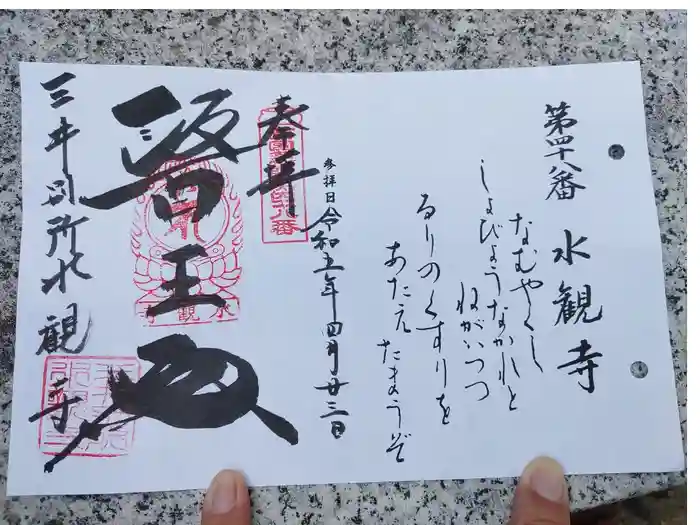 第四十八番 水観寺
なむやくし
しょびょうなかれと
ねがいつつ
るりのくすりを
あたえたまうぞ
参拝日 令和五年四月廿三日
奉拝
医王殿
三井別所水観寺
水観寺